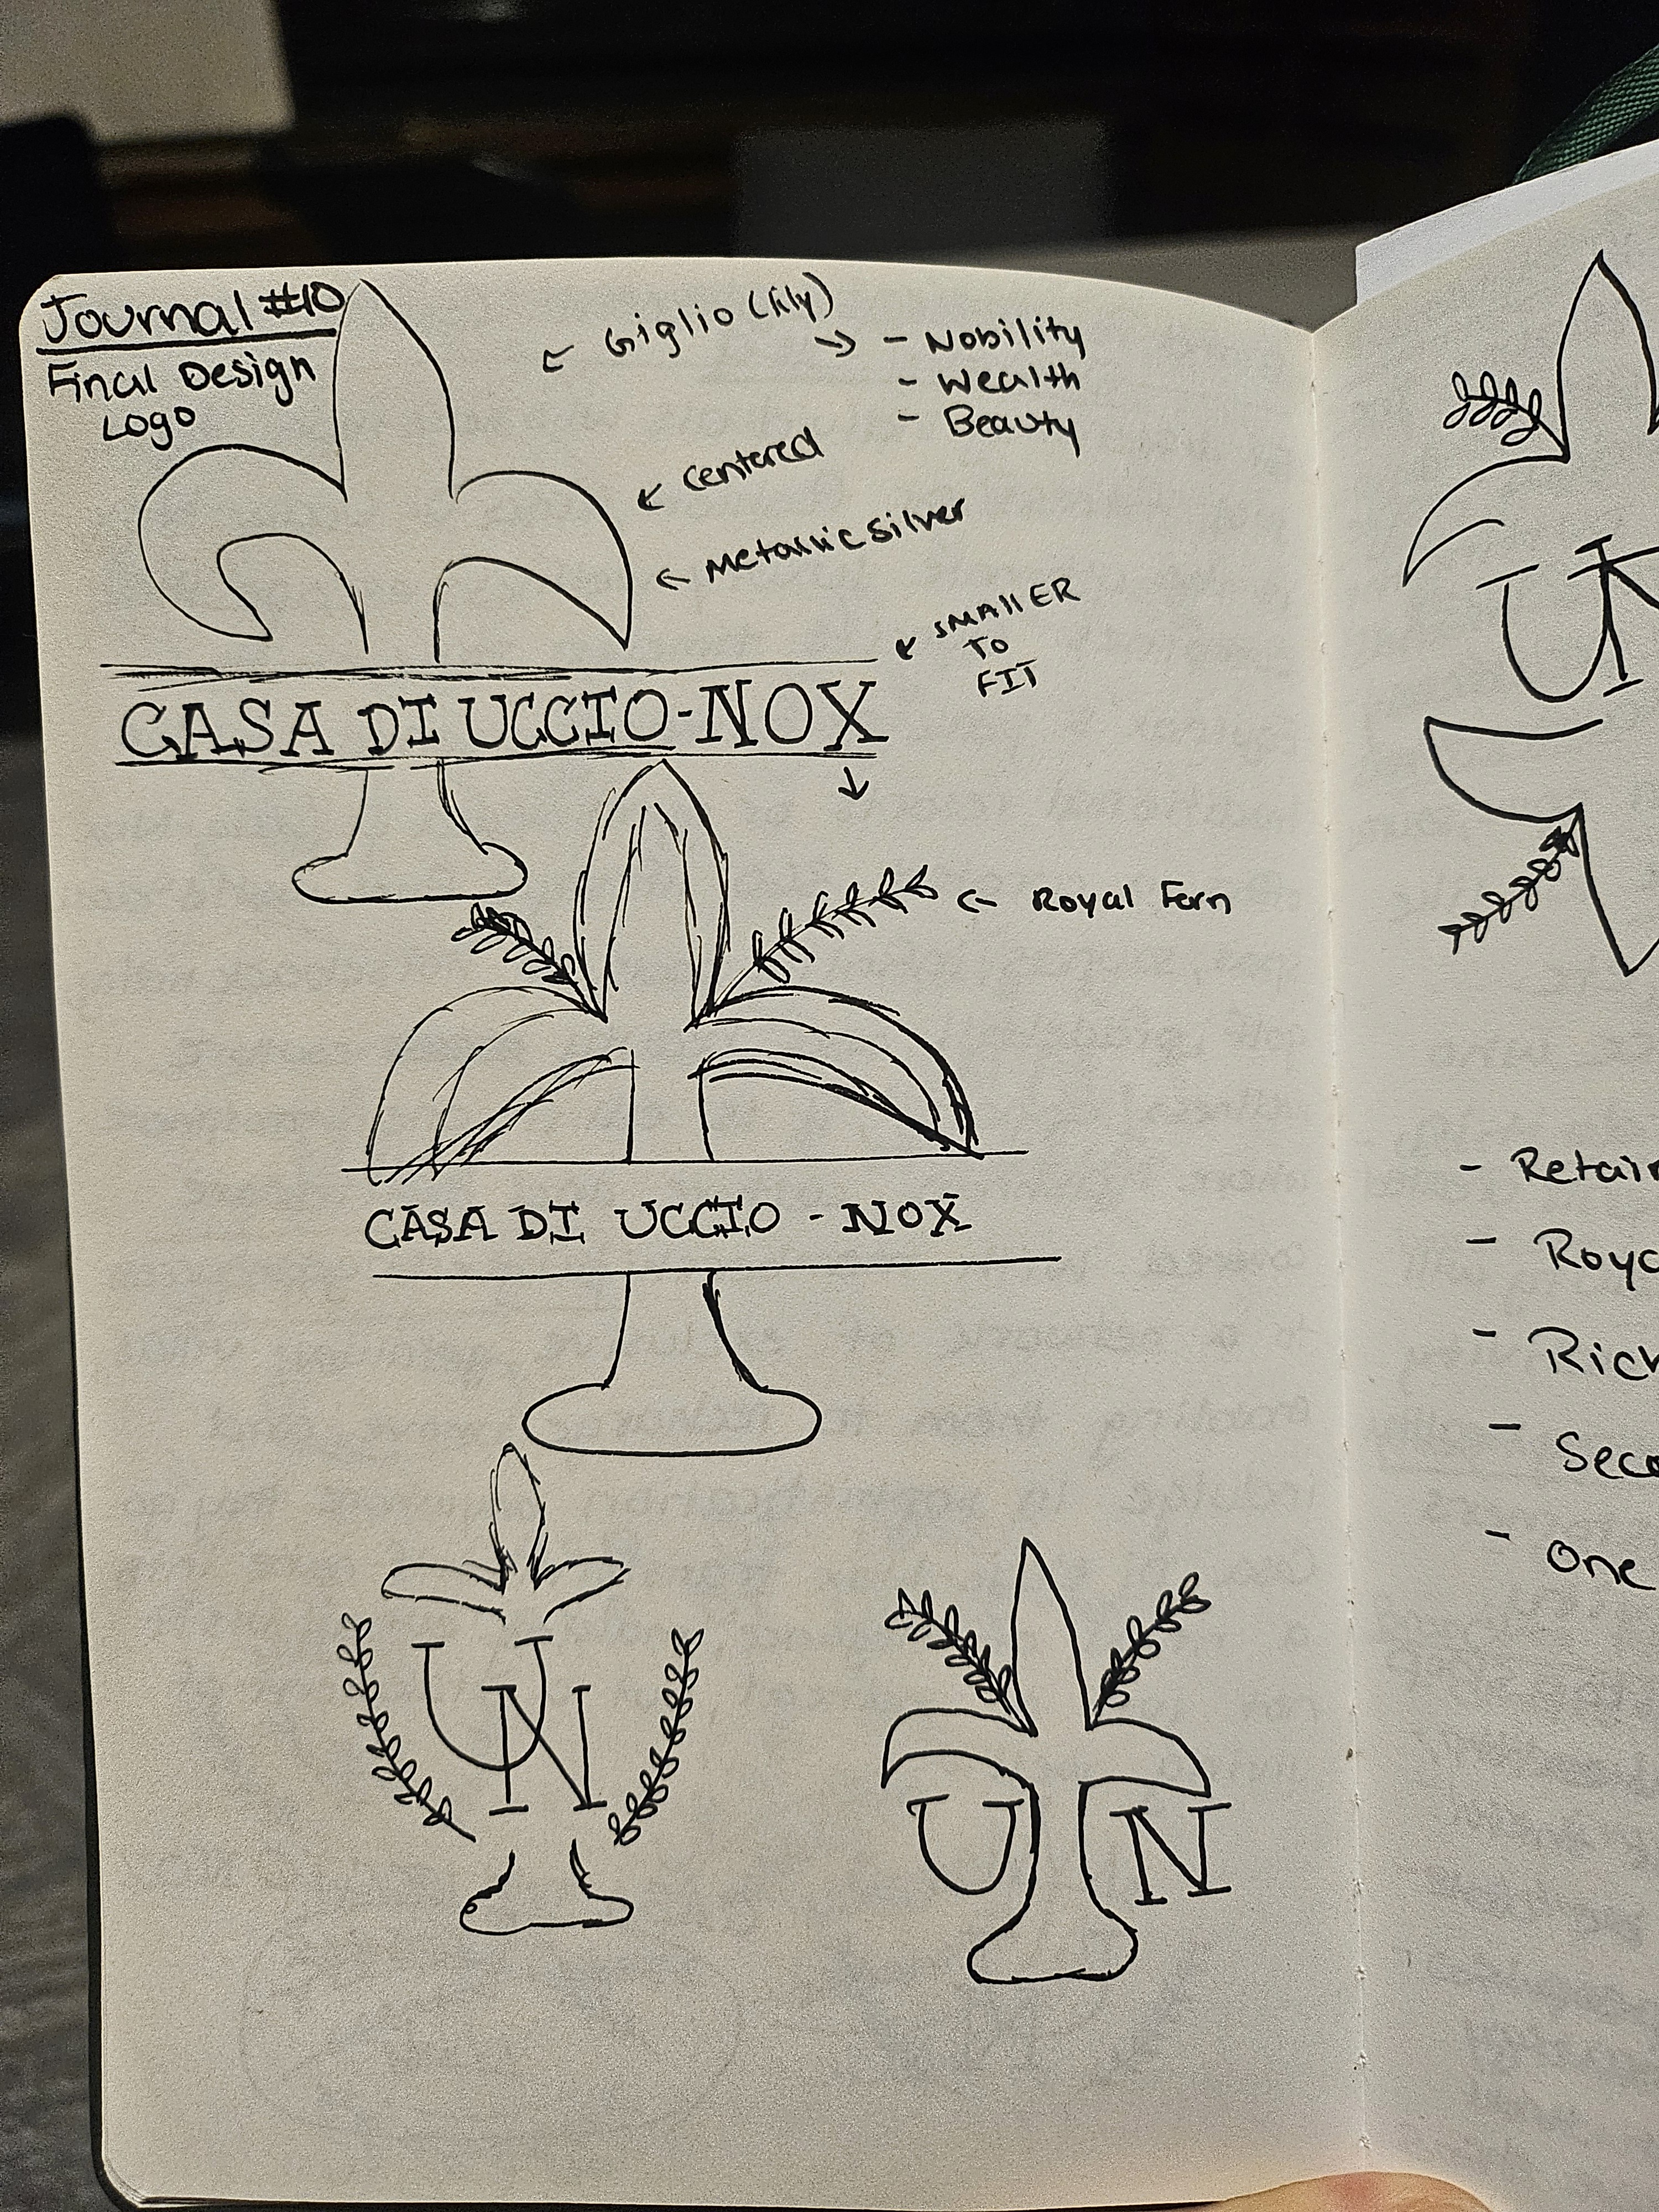 Journal #10
Final Design
Logo
Giglio (lily)
- Nobility
- Wealth
- Beauty
Centered
Metallic Silver
SMAllER
TO
FIT
CASA DI UCCIO-NOX
Royal Fern
CASA DI UCCIO - NOX
U N
U N
U
- Retain
-
- Rich
-
- One